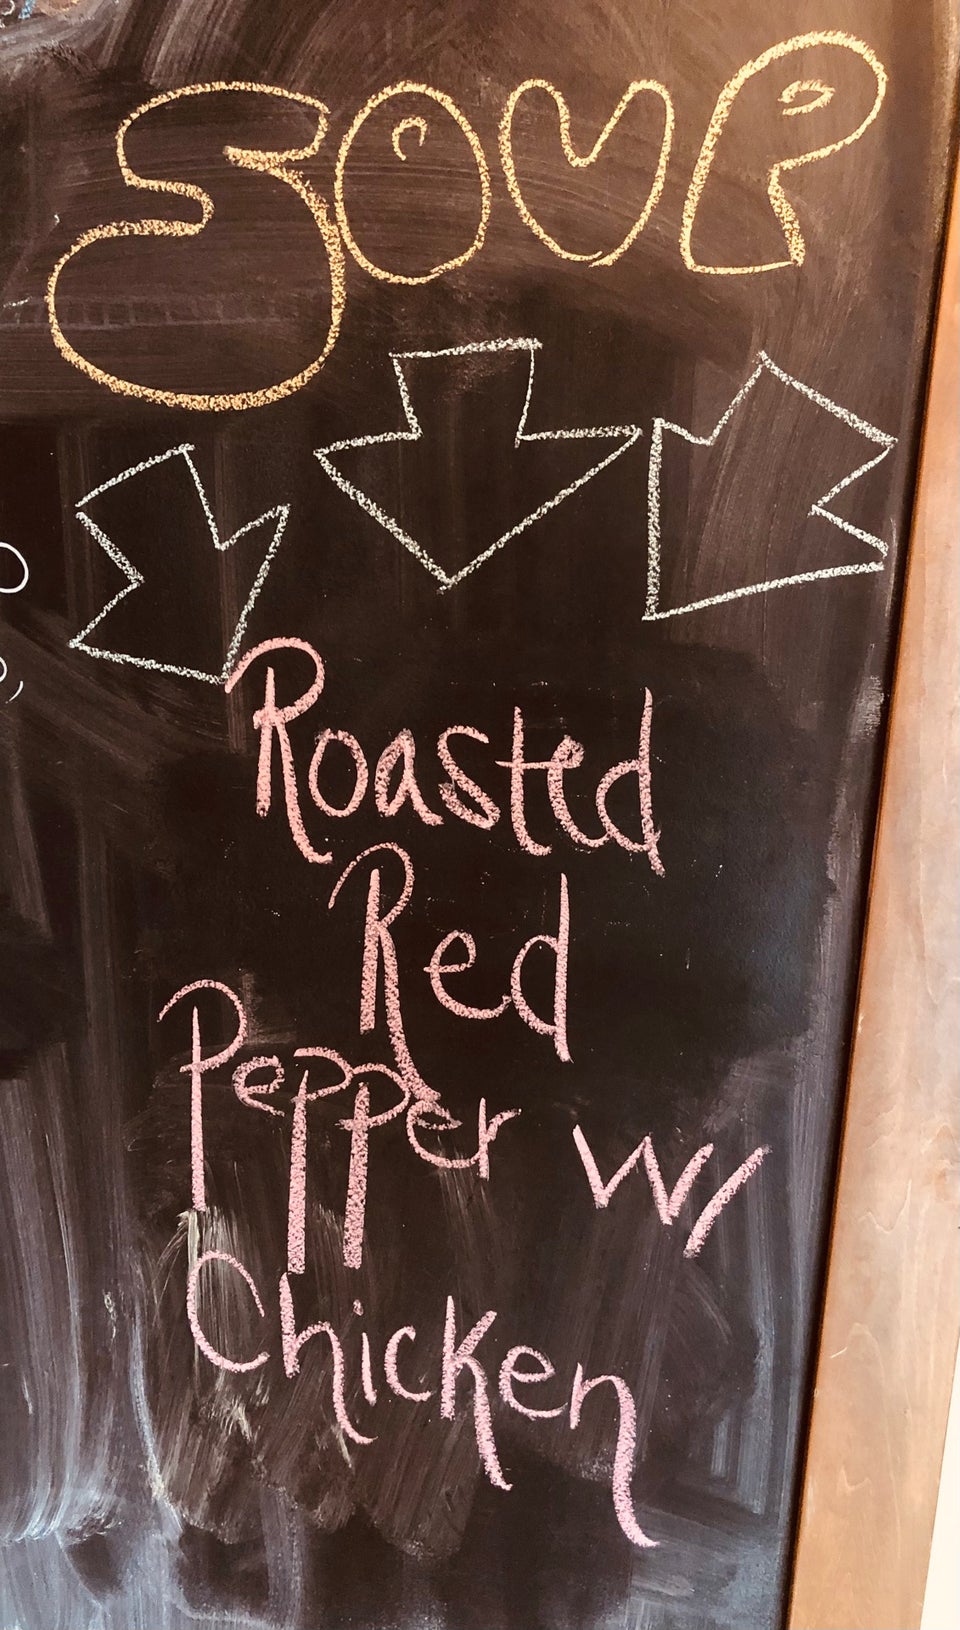 SOUP
Roasted
Red
Pepper w/
Chicken